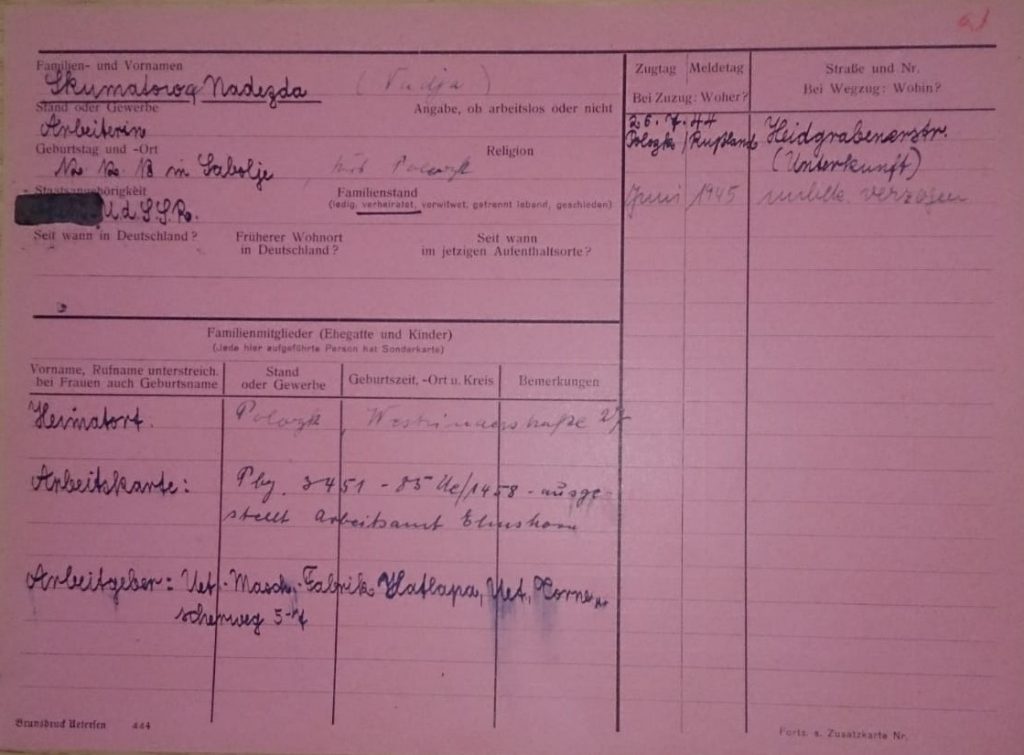 Familien- und Vornamen
Skumatowa Nadezda (Nadja)
Stand oder Gewerbe
Angabe, ob arbeitslos oder nicht
Arbeiterin
Geburtstag und -Ort
Religion
12. 12. 13 in Sabolje
Staatsangehörigkeit
Familienstand
(ledig, verheiratet, verwitwet, getrennt lebend, geschieden)
U d S S R.
Seit wann in Deutschland?
Früherer Wohnort
in Deutschland?
Seit wann
im jetzigen Aufenthaltsorte?
Familienmitglieder (Ehegatte und Kinder)
(Jede hier aufgeführte Person hat Sonderkarte)
Vorname, Rufname unterstreich.
bei Frauen auch Geburtsname
Stand
oder Gewerbe
Geburtszeit, -Ort u. Kreis
Bemerkungen
Heimatort. Polozk,
Arbeitskarte: 3451 - 85 Ue/1458 - ausge-
stellt Arbeitsamt Elmshorn
Arbeitgeber: Uet.-Masch.-Fabrik Hatlapa, Uet,
scherweg 5-7
Brunsdruck Uetersen 444
Zugtag
Meldetag
Bei Zuzug: Woher?
Straße und Nr.
Bei Wegzug: Wohin?
26. 7. 44
Polozk / Rußland Heidgrabenerstr.
(Unterkunft)
Juni 1945 unbek. verzogen
Forts. s. Zusatzkarte Nr.